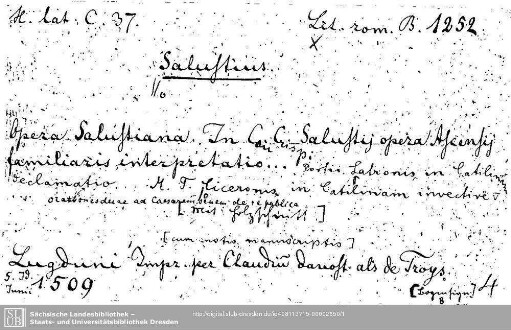 H. lat. C. 37.
Lit. rom. B. 1252
X
Salustius.
Opera Salustiana. In C. Crispi Salustij opera Ascensij
familiaris interpretatio.. Portii Latronis in Catilin
declamatio. M. T. Ciceronis in Catilinam invective
orationesduae ad Caesarem senem de republica
[Mit Holzschnitt]
[cum notis manuscriptis]
Lugduni, Impr. per Claudiu danost. als de Troys.
5. Id. Junii 1509
4
Sächsische Landesbibliothek –
Staats- und Universitätsbibliothek Dresden